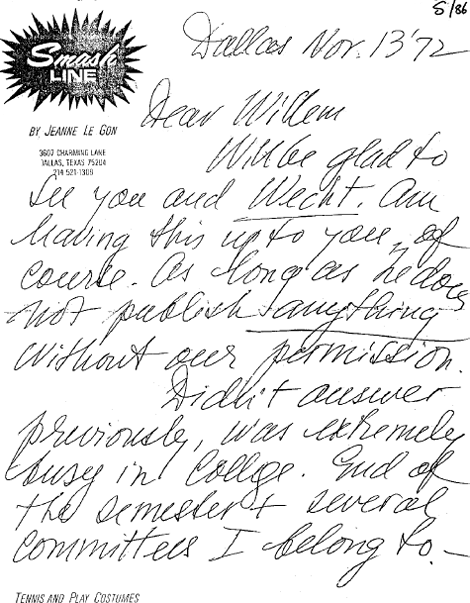 5/86
Smash
LINE
BY JEANNE LE GON
3607 CHARMING LANE
DALLAS, TEXAS 75204
214 521-1309
Dallas Nov. 13 '72
Dear Willem
Will be glad to
see you and Wecht. Am
leaving this up to you, of
course. As long as he does
not publish anything
without our permission.
Didn't answer
previously, was extremely
busy in College. End of
the semester + several
committees I belong to. —
TENNIS AND PLAY COSTUMES